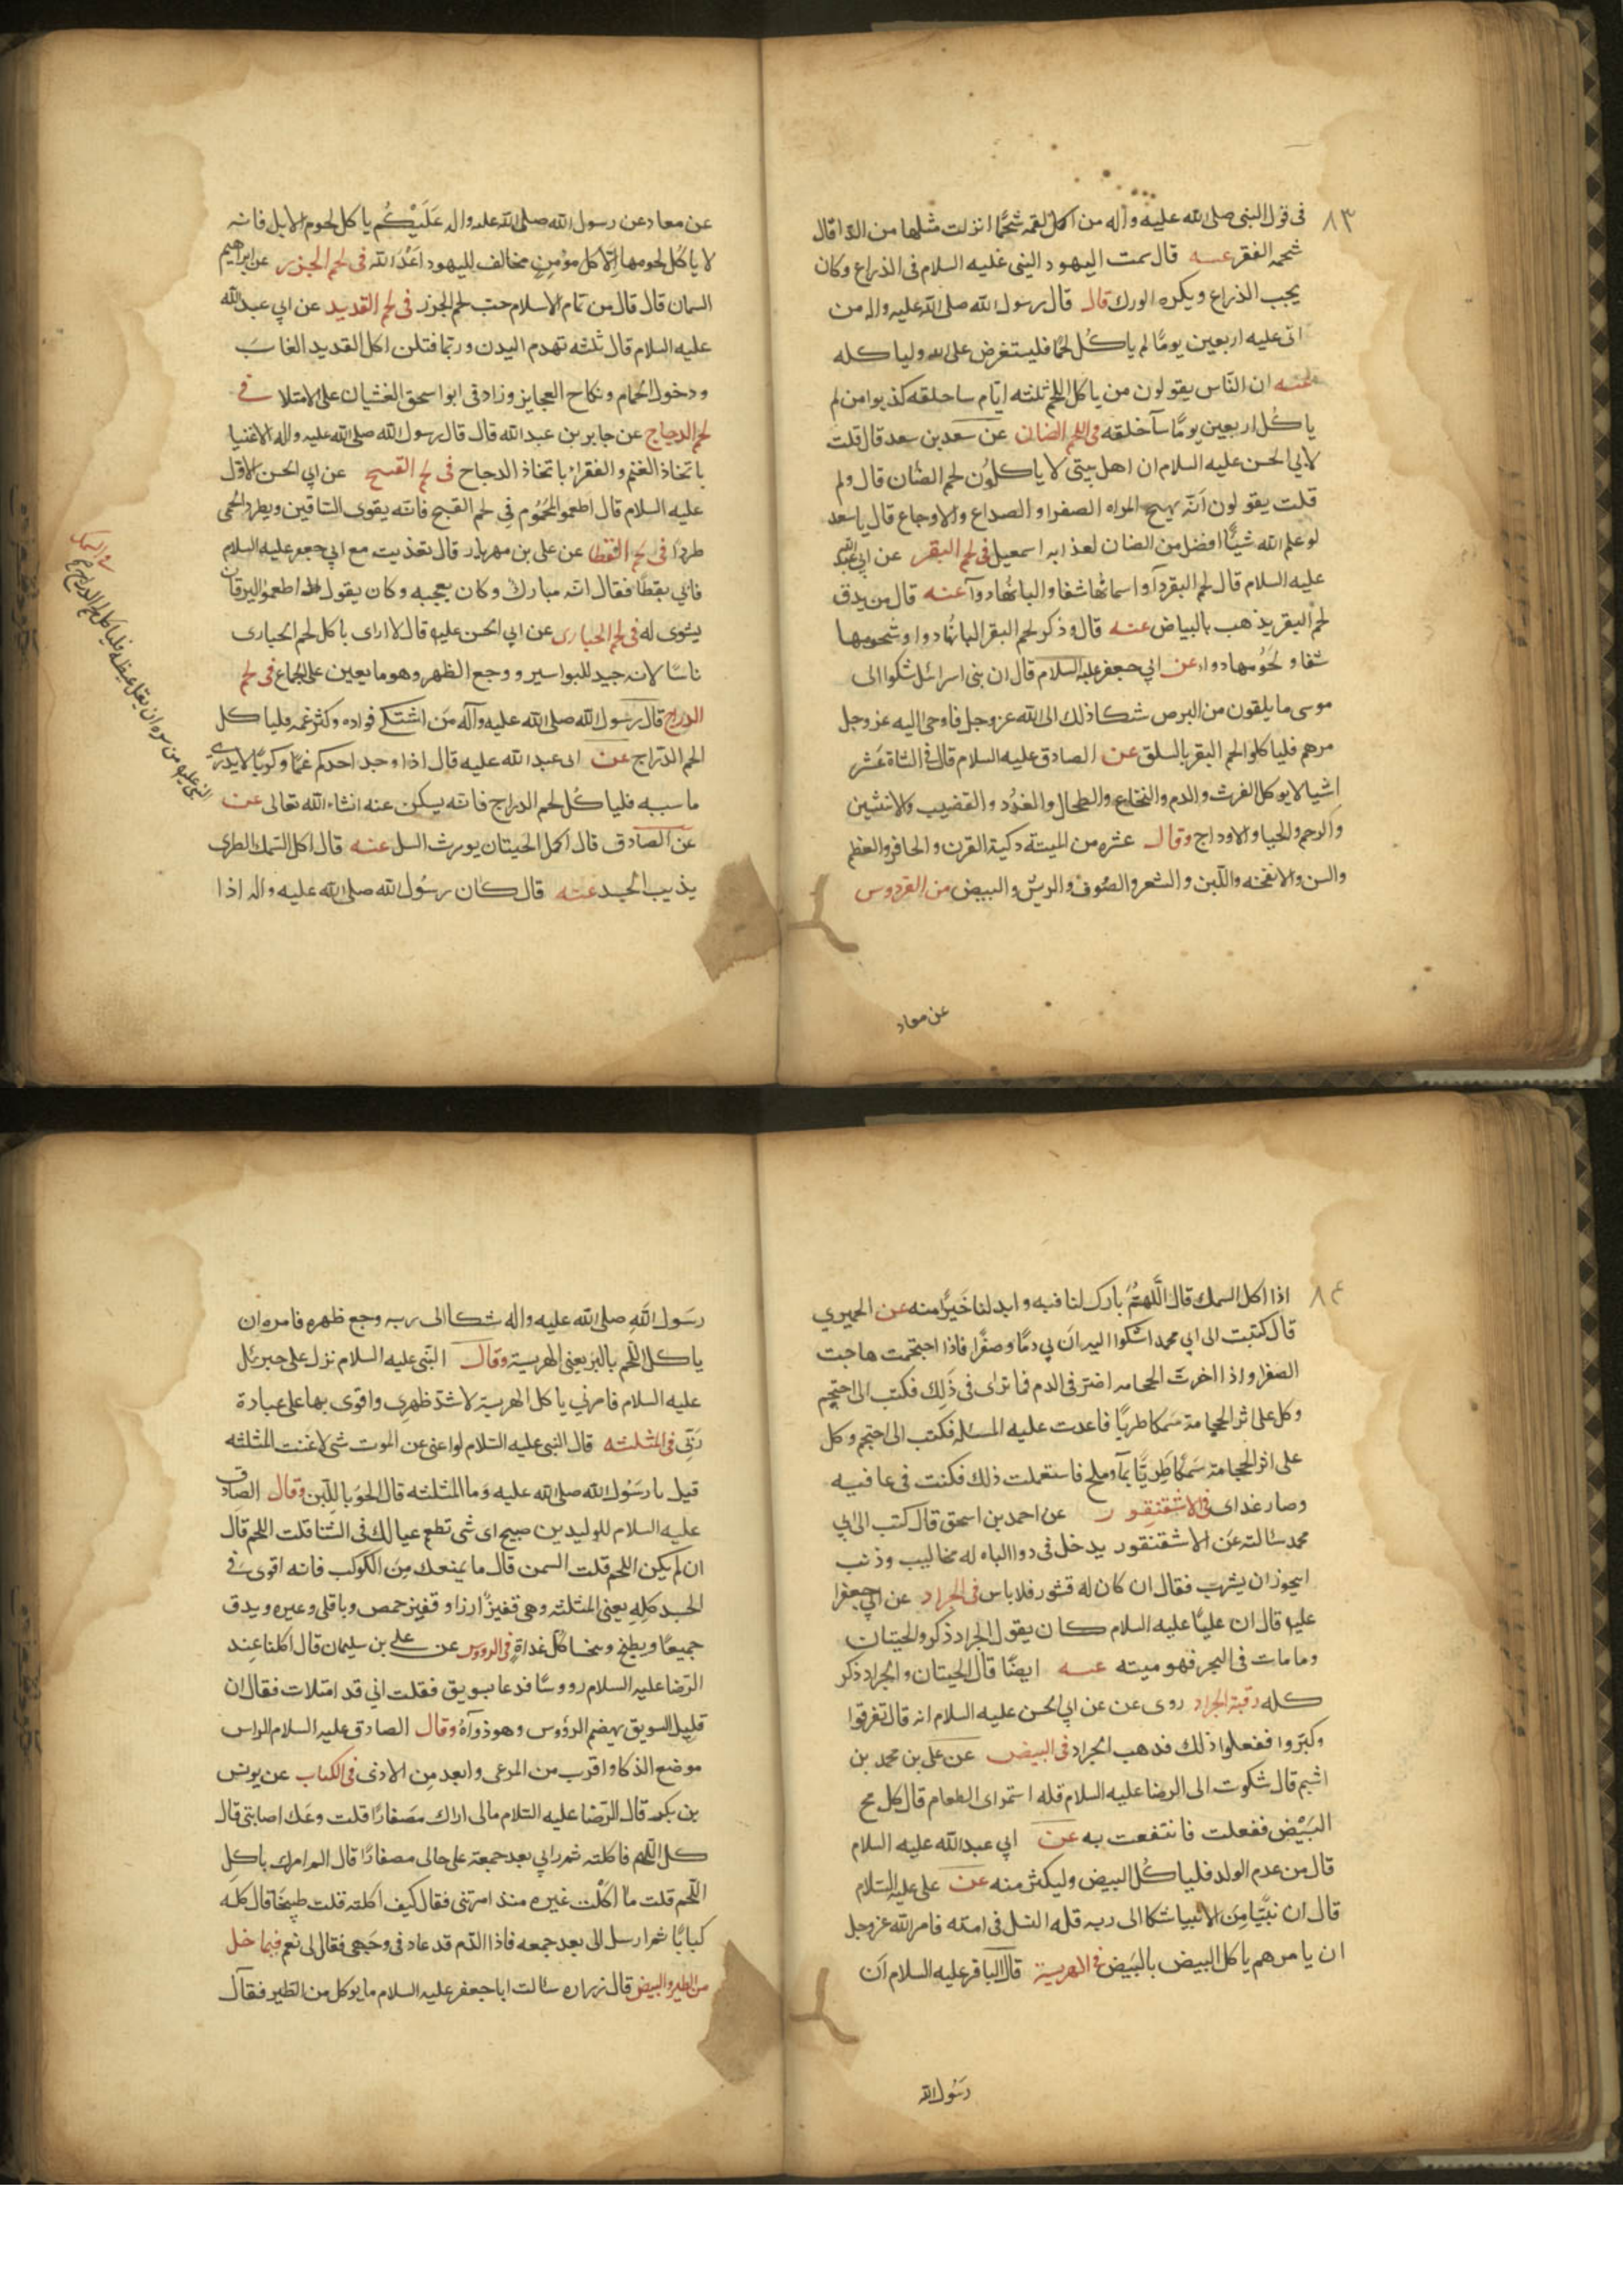 ٨٣
فى قول النبى صلى الله عليه وآله من اكل لقمه شحمًا انزلت مثلها من الدا قال
شحمه الفقر عنه قال سمت اليهود النبى عليه السلام فى الذراع وكان
يحب الذراع ويكره الورك قال قال رسول الله صلى الله عليه واله من
اتى عليه اربعين يومًا لم ياكل لحمًا فليستقرض على الله ولياكله
عنه ان النّاس يقولون من ياكل اللحم ثلثه ايّام ساخلقه كذبوا من لم
ياكل اربعين يومًا سآ خلقه فى اللحم الضان عن سعد بن سعد قال قلت
لابى الحسن عليه السلام ان اهل بيتى لا ياكلون لحم الضّان قال ولم
قلت يقولون انّه يهيج المراه الصفرا و الصداع والاوجاع قال يا سعد
لو علم الله شيئًا افضل من الضان لفدا به اسمعيل فى لحم البقر عن ابى عبد الله
عليه السلام قال لحم البقر دآ و اسمانها شفا و البانها دوآ عنه قال مرق
لحم البقر يذهب بالبياض عنه قال و ذكر لحم البقر البانها دوا و شحومها
شفا و لحومها دواء عن ابى جعفر عليه السلام قال ان بنى اسرائل شكوا الى
موسى ما يلقون من البرص شكا ذلك الى الله عز وجل فاوحى اليه عز وجل
مرهم فلياكلوا لحم البقر بالسلق عن الصادق عليه السلام قال فى الشاة عشر
اشيا لا يوكل الفرث والدم والنخاع والطحال والغدد والقضيب والانثيين
والرحم والحيا والاوداج وقال عشره من الميتة ذكية القرن و الحافر والعظم
والسن والانفخه واللّبن و الشعر والصوف والريش والبيض من الفردوس
عن معاد
عن معاد عن رسول الله صلى الله عليه واله عَلَيْكُم ياكل لحوم الابل فانه
لا ياكل لحومها الّا كل مؤمن مخالف لليهود اعدآ الله فى لحم الجزر عن ابراهيم
السمان قال قال من تمام الاسلام حبّ لحم الجزر فى لحم القديد عن ابى عبد الله
عليه السلام قال ثلثه تهدم البدن و ربّما قتلن اكل القديد الغابّ
و دخول الحمام و نكاح العجايز و زاد فى ابو اسحق الغشيان على الامتلا فى
لحم الدجاج عن جابر بن عبد الله قال قال رسول الله صلى الله عليه واله الاغنيا
باتخاذ الغنم و الفقراء باتخاذ الدجاج فى لحم القبج عن ابى الحسن الاول
عليه السلام قال اطعموا المحموم فى لحم القبج فانه يقوى الساقين ويطرد الحمى
طردًا فى لحم القطا عن على بن مهزيار قال تغذيت مع ابى جعفر عليه السلام
فاتي بقطًا فقال انه مبارك و كان يعجبه و كان يقول اطعموا اليرقان
يشوى له فى لحم الحبارى عن ابى الحسن عليه قال لا ارى باكل لحم الحبارى
باسًا لانه جيد للبواسير و وجع الظهر و هو ما يعين على الجماع فى لحم
الدراج قال رسول الله صلى الله عليه وآله من اشتكى فواده و كثر غمه فلياكل
لحم الدّراج عن ابى عبد الله عليه قال اذا وجد احدكم غمًا و كربًا لا يدرى
ما سببه فلياكل لحم الدراج فانه يسكن عنه انشاء الله تعالى عن
عن الصادق قال اكل الحيتان يورث السل عنه قال اكل السمك الطرى
يذيب الجسد عنه قال كان رسول الله صلى الله عليه واله اذا
فى السمك
النبى عليه من سره ان يقل غيظه فلياكل لحم الدراج
٨٤
اذا اكل السمك قال اللّهمّ بارك لنا فيه و ابدلنا خيرًا منه عن الحميري
قال كتبت الى ابى محمد اشكوا اليه ان بى دمًا و صفرًا فاذا احتجمت هاجت
الصفرا و اذا اخرت الحجامه اضرّ فى الدم فما ترى فى ذلك فكتب الى احتجم
و كل على اثر الحجامة سمكا طريًا فاعدت عليه المسئله فكتب الى احتجم و كل
على اثر الحجامة سمكًا طريًّا بمآ و ملح فاستعملت ذلك فكنت فى عافيه
و صار غداى فى الاشقنقور عن احمد بن اسحق قال كتب الى ابى
محمد سالته عن الاشقنقور يدخل فى دوا الباه له مخاليب و ذنب
ايجوز ان يشرب فقال ان كان له قشور فلا باس فى الجراد عن ابى جعفر
عليه قال ان عليًّا عليه السلام كان يقول الجراد ذكى و الحيتان
و ما مات فى البحر فهو ميته عنه ايضًا قال الحيتان و الجراد ذكى
كله رقية الجراد روى عن عن ابى الحسن عليه السلام انه قال تفرقوا
و كبّروا ففعلوا ذلك فذهب الجراد فى البيض عن على بن محمد بن
اشيم قال شكوت الى الرضا عليه السلام قله استمراى الطعام قال كل مح
البَيْض ففعلت فانتفعت به عن ابى عبد الله عليه السلام
قال من عدم الولد فلياكل البيض و ليكثر منه عن على عليه السلام
قال ان نبيًّا من الانبيا شكا الى ربه قله النسل فى امته فامر الله عز وجل
ان يامرهم ياكل البيض بالبَيض فى الهريسة قال الباقر عليه السلام ان
رسول الله
رسول الله صلى الله عليه واله شكا الى ربه وجع ظهره فامره ان
ياكل اللّحم بالبرّ يعنى الهريسة وقال النّبى عليه السلام نزل على جبرئل
عليه السلام فامرني ياكل الهريسة لاشدّ ظهرى و اقوى بها على عبادة
ربّى فى المثلثه قال النبى عليه السّلام لو اغنى عن الموت شى لاغنت المثلثه
قيل يا رسول الله صلى الله عليه و ما المثلثه قال الحو باللّبن وقال الصادق
عليه السلام للوليد بن صبيح اى شى تطعم عيالك فى الشتا قلت اللحم قال
ان لم يكن اللحم قلت السمن قال ما يمنعك من الكوكب فانه اقوى فى
الجسد كله يعنى المثلثه و هى قفيزُ ارز او قفيز حمص و باقلى و غيره و يدق
جميعًا و يطبخ و يتحسا كل غداةٍ فى الروس عن على بن سليمان قال اكلنا عند
الرّضا عليه السلام رووسًا فدعا بسويق فقلت انى قد امتلات فقال ان
قليل السويق يهضم الرؤوس و هو دوآه وقال الصادق عليه السلام الراس
موضع الذكا و اقرب من المرعى و ابعد من الاذى فى الكباب عن يونس
بن بكر قال الرّضا عليه السّلام مالى اراك مصفارًا قلت وعك اصابنى قال
كل اللّحم فاكلته ثم رانى بعد جمعة على حالى مصفارًا قال الم امرك ياكل
اللّحم قلت ما اكلت غيره منذ امرتنى فقال كيف اكلته قلت طبيخًا قال كله
كبابًا ثم ارسل الى بعد جمعه فاذا الدّم قد عاد فى وجهى فقال لى نعم فيما حل
من الطير والبيض قال زراره سالت ابا جعفر عليه السلام ما يوكل من الطير فقال